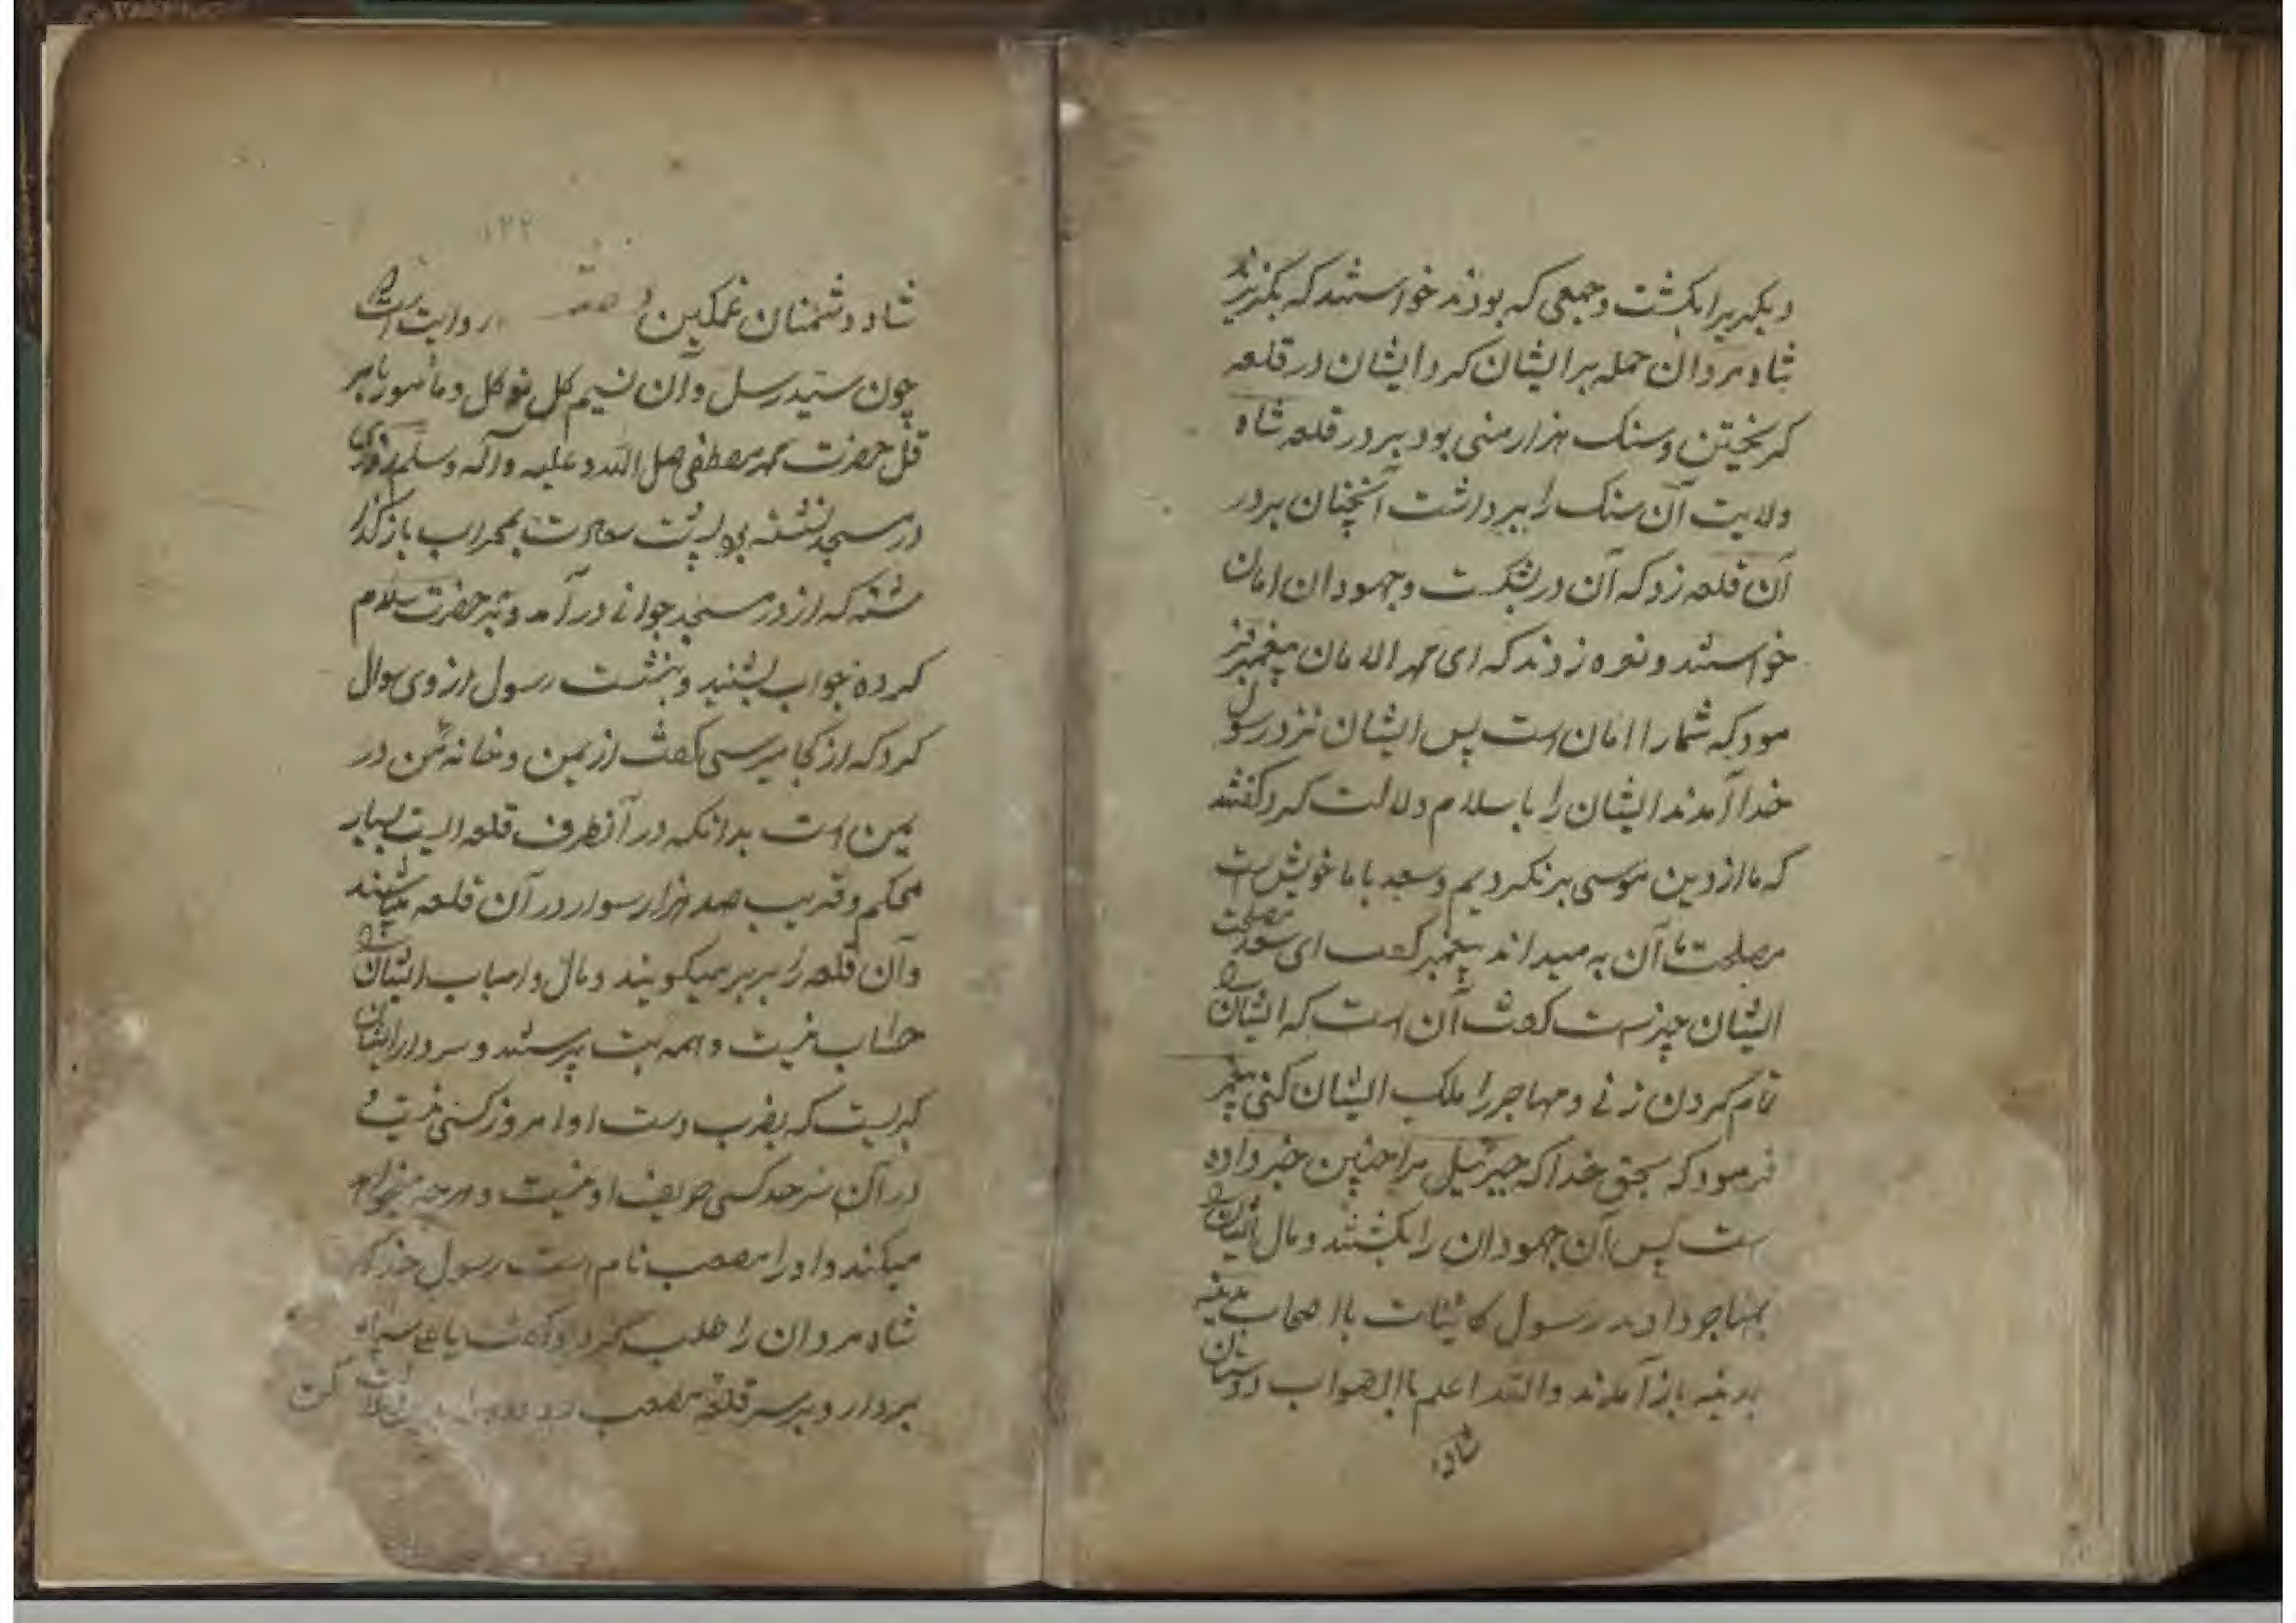 دیگریرا بکشت و جمعی که بودند خواستند که بگریزند
شاه مردان حمله بر ایشان کرد ایشان در قلعه
کریختن و سنک هزار منی بود بر در قلعه شاه
ولایت آن سنک را برداشت آنچنان بر در
آن قلعه زد که آن در بشکست و جهودان امان
خواستند و نعره زدند که ای محمد الامان پیغمبر فر
مود که شما را امان است پس ایشان نزد رسول
خدا آمدند ایشان را باسلام دلالت کرد گفتند
که ما از دین موسی بر نکردیم و سعد با ما خویش است
مصلحت ما آن به میداند پیغمبر گفت ای سعد مصلحت
ایشان چیزست گفت آن است که ایشان را
تمام کردن زنی و مهاجر را ملک ایشان کنی پیغمبر
فرمود که بحق خدا که جبرئیل مرا چنین خبر داده
ست پس آن جهودان را بکشتند و مال ایشان را
بمهاجر دادند رسول کائینات باا صحاب
بمدینه باز آمدند والله اعلم باالصواب دوستان
شاد
۱۲۲
شاد و دشمنان غمکین روایت است
چون سید رسل و آن نسیم کل توکل و مأمور بامر
قل حضرت محمد مصطفی صل الله و علیه و آله و سلم روزی
در مسجد نشسته بود پشت بمحراب باز گذا
شته که از در مسجد جوانی در آمد و به حضرت سلام
کرده جواب بشنید و بنشست رسول از وی سوال
کرد که از کجا میرسی گفت از یمن و خانه من در
یمن است بدانکه در آنطرف قلعه ایست بسیار
محکم و قریب صد هزار سوار در آن قلعه میباشند
و آن قلعه را بربر میکویند و مال و اسباب ایشان را
حساب نیست و همه بت پرستند و سردار ایشان
کبریست که بضرب دست او امروز کسی نیست و
در آن سرحد کسی حریف او نیست و هر چه میخواهد
میکند و او را مصعب نام است رسول خدا که
شاه مردان را طلب کرد و گفت یا علی سپاه
بردار و بر سر قلعه مصعب کن